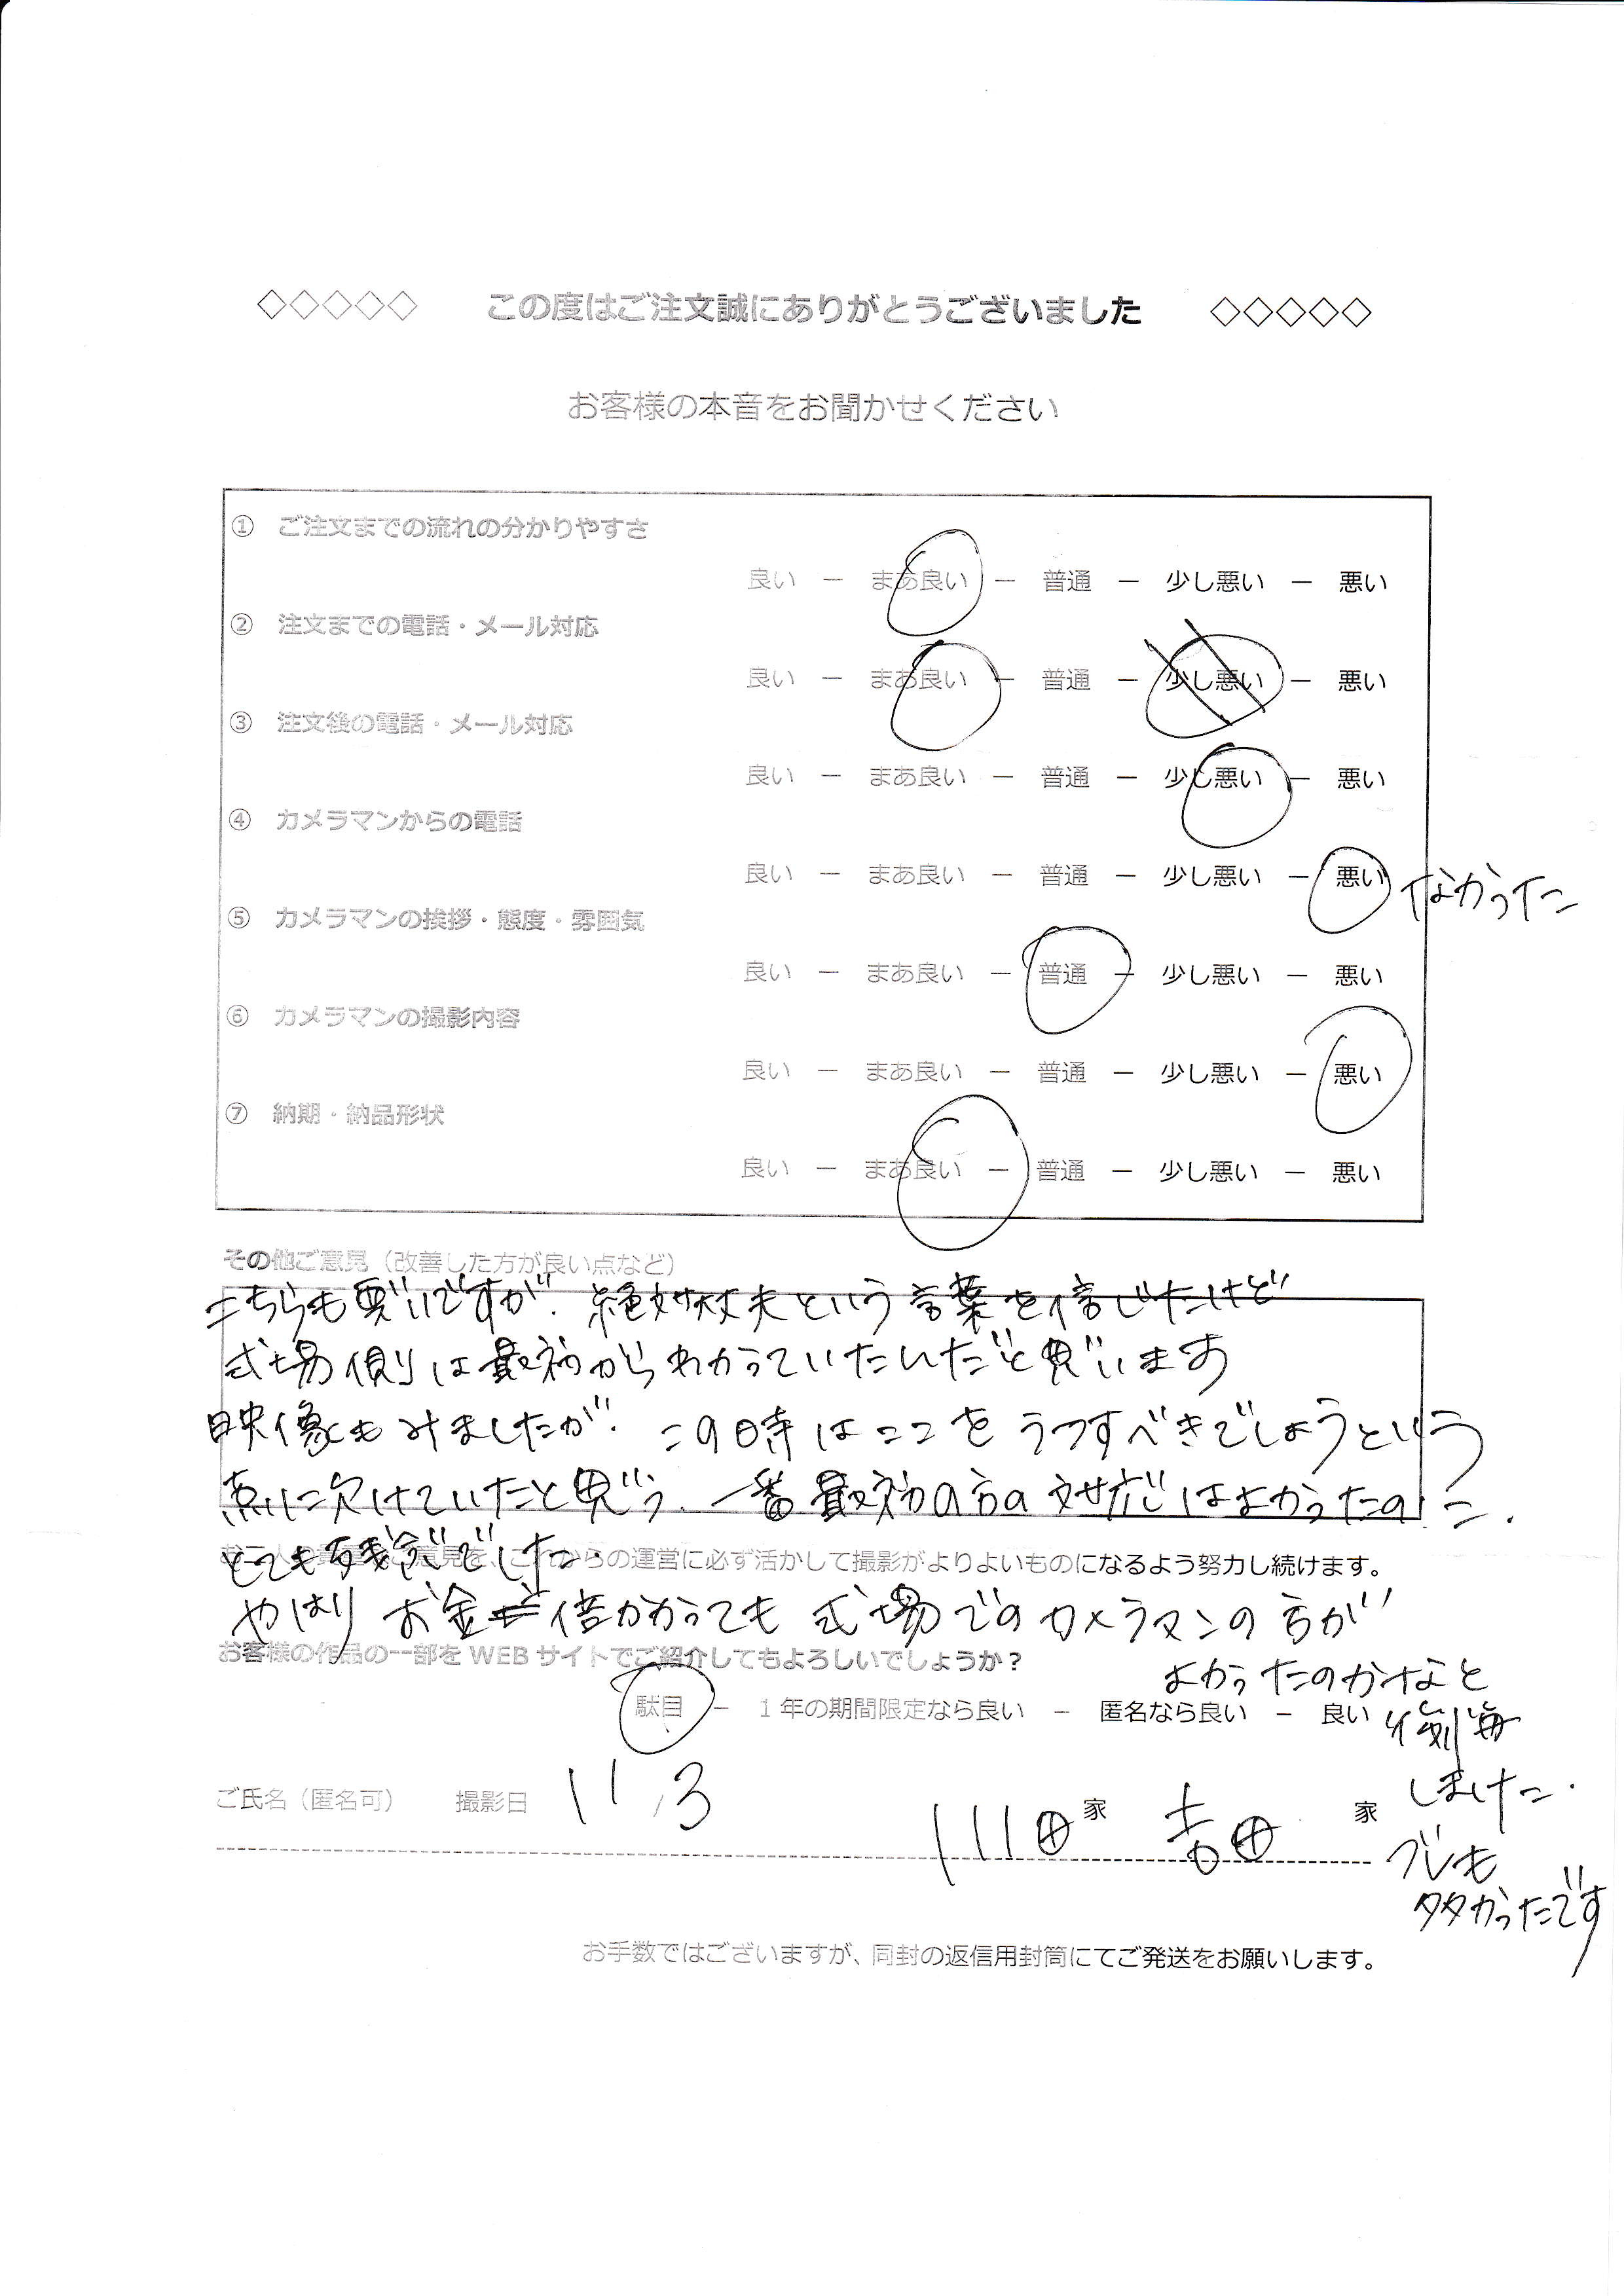 ◇◇◇◇◇ この度はご注文誠にありがとうございました ◇◇◇◇◇
お客様の本音をお聞かせください
① ご注文までの流れの分かりやすさ
良い － まあ良い － 普通 － 少し悪い － 悪い
② 注文までの電話・メール対応
良い － まあ良い － 普通 － 少し悪い － 悪い
③ 注文後の電話・メール対応
良い － まあ良い － 普通 － 少し悪い － 悪い
④ カメラマンからの電話
良い － まあ良い － 普通 － 少し悪い － 悪い なかった
⑤ カメラマンの挨拶・態度・雰囲気
良い － まあ良い － 普通 － 少し悪い － 悪い
⑥ カメラマンの撮影内容
良い － まあ良い － 普通 － 少し悪い － 悪い
⑦ 納期・納品形状
良い － まあ良い － 普通 － 少し悪い － 悪い
その他ご意見（改善した方が良い点など）
こちらも悪いですが、絶対大丈夫という言葉を信じたけど
式場側は最初からわかっていたいんだと思います
映像もみましたが、この時はここをうつすべきでしょうという
点に欠けていたと思う、一番最初の方の対応はよかったのに、
とても残念でした、
ご意見を、これからの運営に必ず活かして撮影がよりよいものになるよう努力し続けます。
やはり お金 倍かかっても 式場でのカメラマンの方が
お客様の作品の一部を WEB サイトでご紹介してもよろしいでしょうか？
よかったのかなと
駄目 － １年の期間限定なら良い － 匿名なら良い － 良い
後悔
しました.
ご氏名（匿名可） 撮影日 11/3 川田家 吉田家
ブレも
多かったです
お手数ではございますが、同封の返信用封筒にてご発送をお願いします。